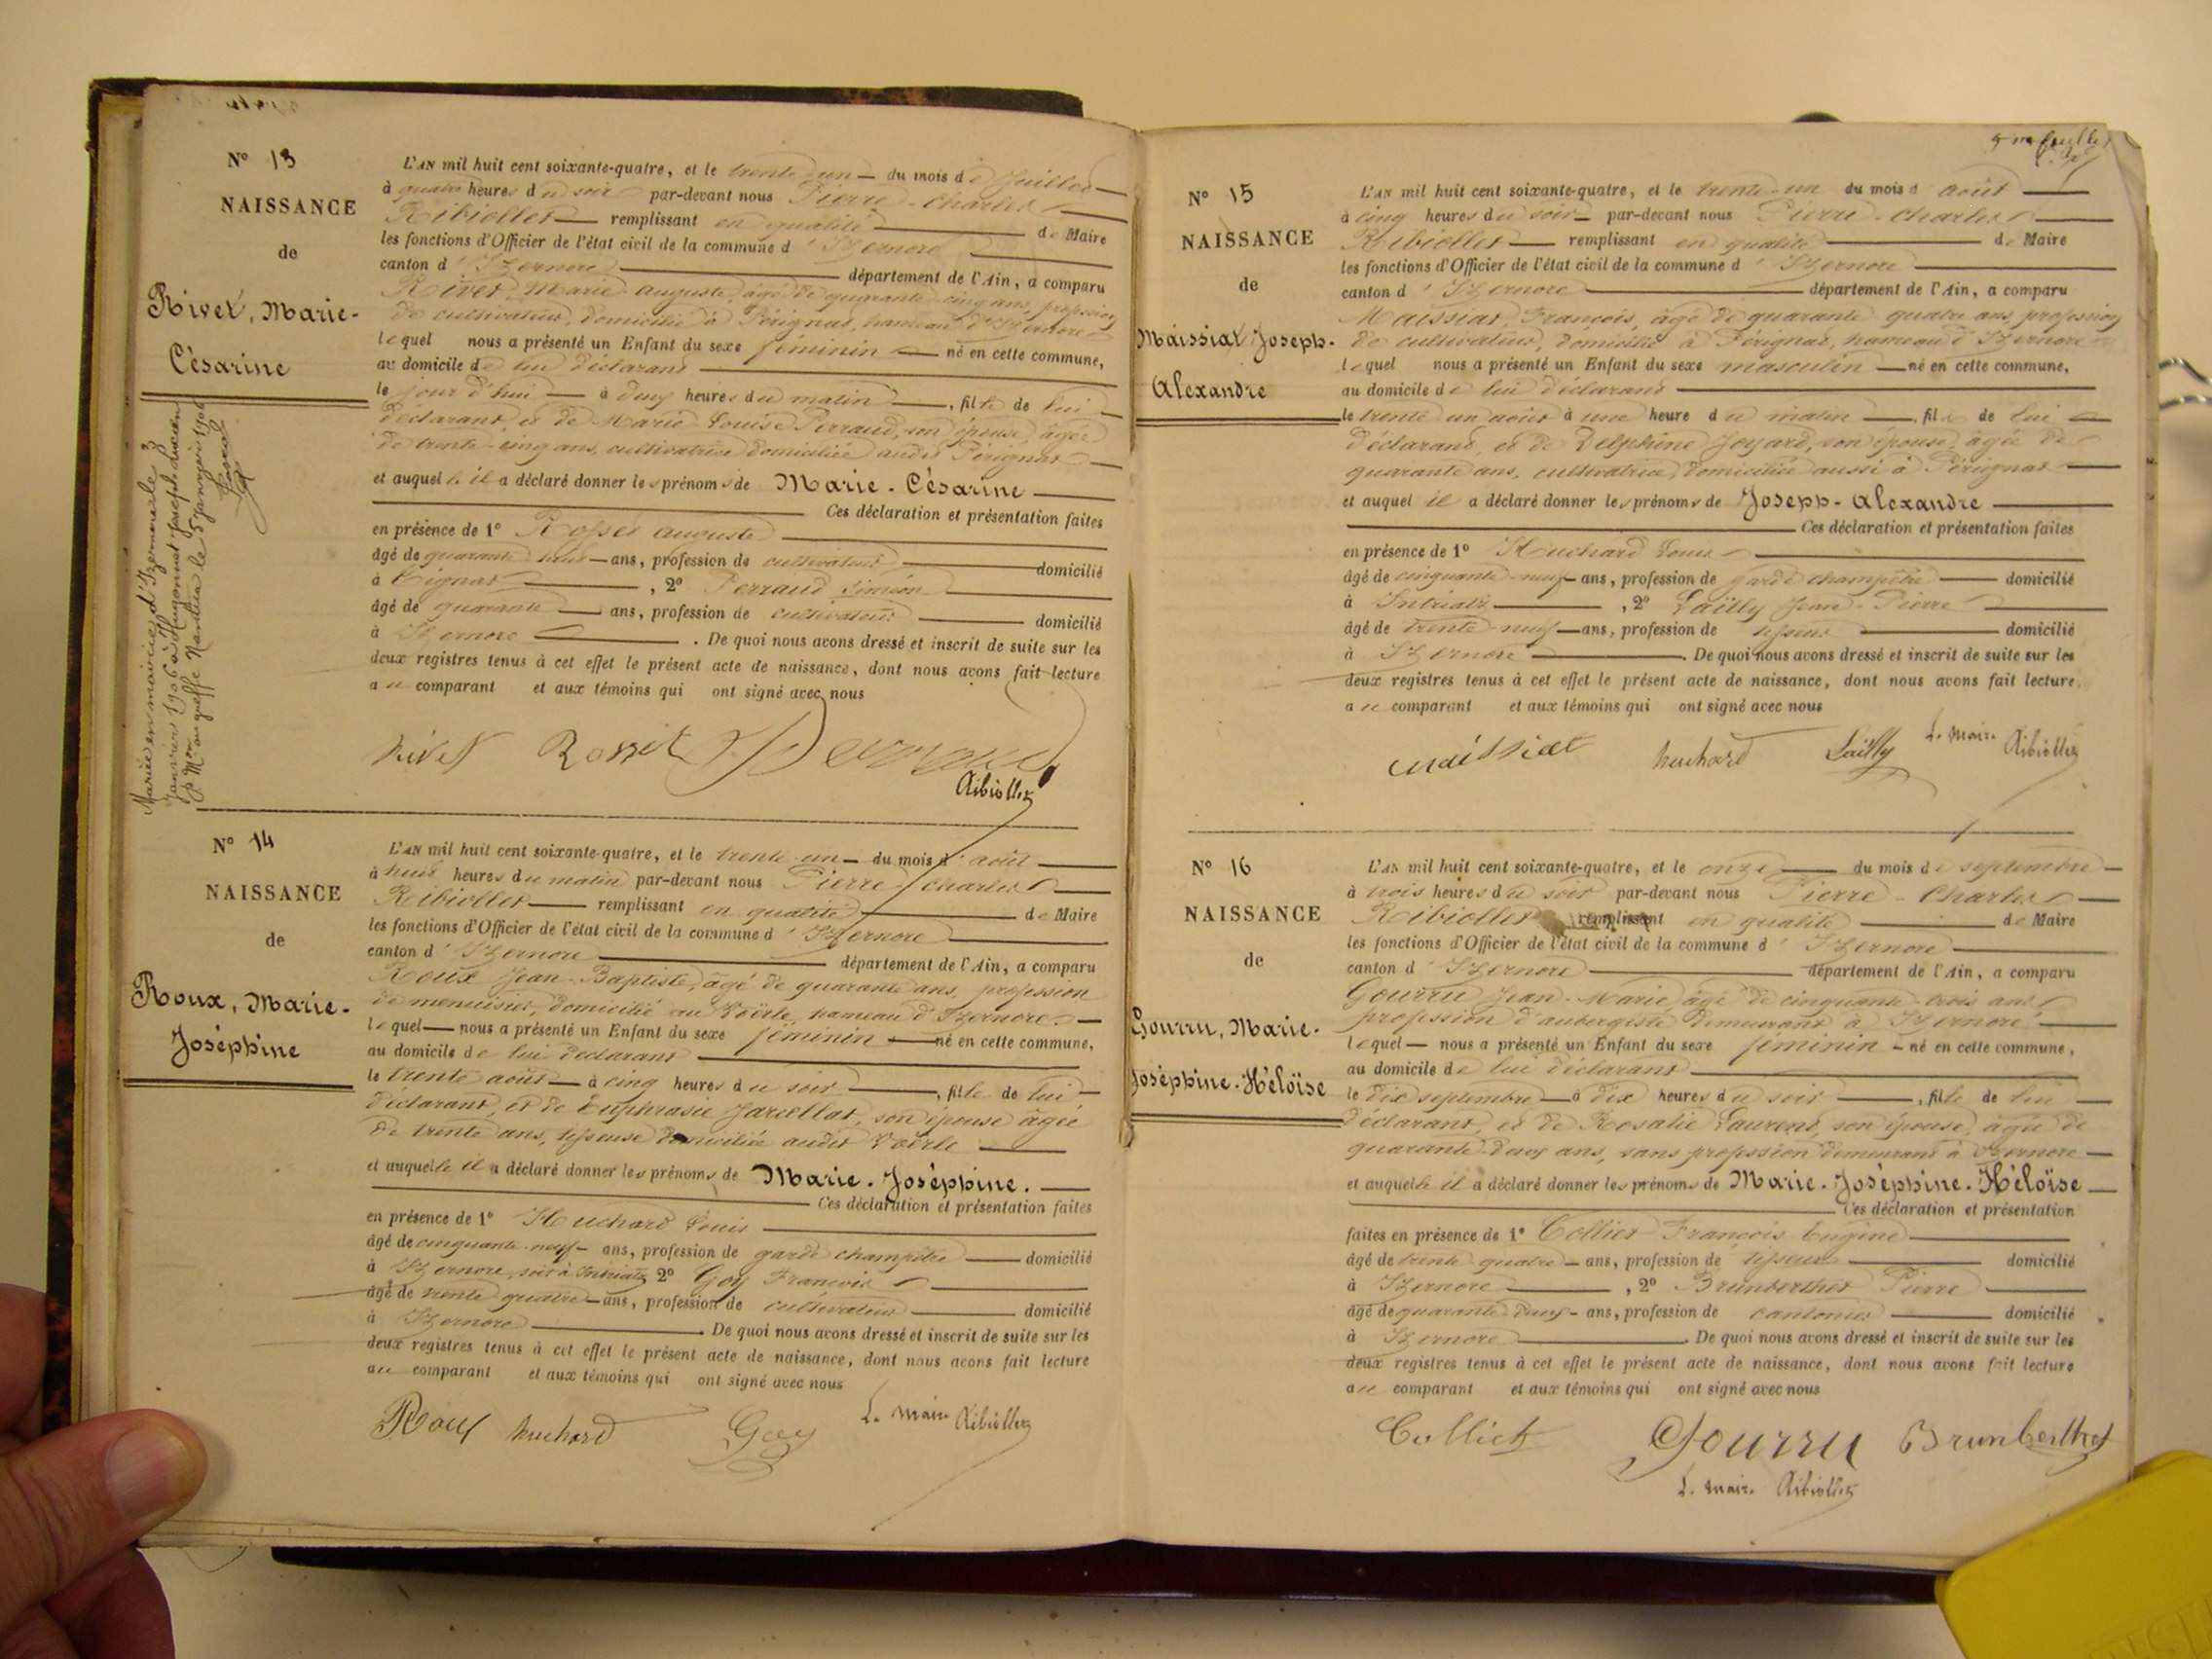 Nº 13
NAISSANCE
de
Rivet, Marie-
Césarine
Mariée en mairie d'Izernore le 3
janvier 1906 à Hugonnet Joseph
Nantua le 5 Janvier 1906
L'AN mil huit cent soixante-quatre, et le trente un du mois de Juillet
à quatre heures du soir par-devant nous Pierre-Charles
Ribiollet remplissant en qualité de Maire
les fonctions d'Officier de l'état civil de la commune d'Izernore
canton d'Izernore département de l'Ain, a comparu
Rivet, Marie Auguste, âgé de quarante cinq ans, profession
de cultivateur, domicilié à Pérignat, hameau d'Izernore
lequel nous a présenté un Enfant du sexe féminin né en cette commune,
au domicile de lui déclarant
le jour d'hui à deux heures du matin, fille de lui
déclarant, et de Marie Louise Perraud, son épouse, âgée
de trente-cinq ans, cultivatrice domiciliée audit Pérignat
et auquelle il a déclaré donner les prénoms de Marie-Césarine
Ces déclaration et présentation faites
en présence de 1º Rosset Auguste
âgé de quarante huit ans, profession de cultivateur domicilié
à Bignat, 2º Perraud Siméon
âgé de quarante ans, profession de cultivateur domicilié
à Izernore. De quoi nous avons dressé et inscrit de suite sur les
deux registres tenus à cet effet le présent acte de naissance, dont nous avons fait lecture
au comparant et aux témoins qui ont signé avec nous
Rivet Rosset Perraud
Ribiollet
Nº 14
NAISSANCE
de
Roux, Marie-
Joséphine
L'AN mil huit cent soixante-quatre, et le trente-un du mois d'août
à huit heures du matin par-devant nous Pierre Charles
Ribiollet remplissant en qualité de Maire
les fonctions d'Officier de l'état civil de la commune d'Izernore
canton d'Izernore département de l'Ain, a comparu
Roux Jean-Baptiste, âgé de quarante ans, profession
de menuisier, domicilié au Voërle, hameau d'Izernore
lequel nous a présenté un Enfant du sexe féminin né en cette commune,
au domicile de lui déclarant
le trente août à cinq heures du soir, fille de lui
déclarant, et de Euphrasie Jarcellat, son épouse âgée
de trente ans, tisseuse domiciliée audit Voërle
et auquelle il a déclaré donner les prénoms de Marie-Joséphine.
Ces déclaration et présentation faites
en présence de 1º Huchard Louis
âgé de cinquante-neuf ans, profession de garde champêtre domicilié
à Izernore, soit à Intriatz, 2º Goy François
âgé de trente quatre ans, profession de cultivateur domicilié
à Izernore. De quoi nous avons dressé et inscrit de suite sur les
deux registres tenus à cet effet le présent acte de naissance, dont nous avons fait lecture
au comparant et aux témoins qui ont signé avec nous
Roux huchard Goy L. Maire Ribiollet
Nº 15
NAISSANCE
de
Maissiat Joseph-
Alexandre
L'AN mil huit cent soixante-quatre, et le trente-un du mois d'août
à cinq heures du soir par-devant nous Pierre-Charles
Ribiollet remplissant en qualité de Maire
les fonctions d'Officier de l'état civil de la commune d'Izernore
canton d'Izernore département de l'Ain, a comparu
Maissiat, François, âgé de quarante quatre ans, profession
de cultivateur, domicilié à Pérignat, hameau d'Izernore
lequel nous a présenté un Enfant du sexe masculin né en cette commune,
au domicile de lui déclarant
le trente un août à une heure du matin, fils de lui
déclarant, et de Delphine Joyard, son épouse, âgée de
quarante ans, cultivatrice, domiciliée aussi à Pérignat
et auquel il a déclaré donner les prénoms de Joseph-Alexandre
Ces déclaration et présentation faites
en présence de 1º Huchard Louis
âgé de cinquante-neuf ans, profession de garde champêtre domicilié
à Intriatz, 2º Lailly Jean-Pierre
âgé de trente-neuf ans, profession de tisseur domicilié
à Izernore. De quoi nous avons dressé et inscrit de suite sur les
deux registres tenus à cet effet le présent acte de naissance, dont nous avons fait lecture
au comparant et aux témoins qui ont signé avec nous
maissiat huchard Lailly L. Maire Ribiollet
Nº 16
NAISSANCE
de
Gourru, Marie-
Joséphine-Héloïse
L'AN mil huit cent soixante-quatre, et le onze du mois de septembre
à trois heures du soir par-devant nous Pierre-Charles
Ribiollet remplissant en qualité de Maire
les fonctions d'Officier de l'état civil de la commune d'Izernore
canton d'Izernore département de l'Ain, a comparu
Gourru Jean-Marie âgé de cinquante-trois ans
profession d'aubergiste demeurant à Izernore
lequel nous a présenté un Enfant du sexe féminin né en cette commune,
au domicile de lui déclarant
le dix septembre à dix heures du soir, fille de lui
déclarant, et de Rosalie Laurent, son épouse, âgée de
quarante-deux ans, sans profession demeurant à Izernore
et auquelle il a déclaré donner les prénoms de Marie-Joséphine-Héloïse
Ces déclaration et présentation
faites en présence de 1º Collict François Eugène
âgé de trente quatre ans, profession de tisseur domicilié
à Izernore, 2º Brunberthet Pierre
âgé de quarante deux ans, profession de cantonier domicilié
à Izernore. De quoi nous avons dressé et inscrit de suite sur les
deux registres tenus à cet effet le présent acte de naissance, dont nous avons fait lecture
au comparant et aux témoins qui ont signé avec nous
Collict Gourru Brunberthet
L. Maire Ribiollet